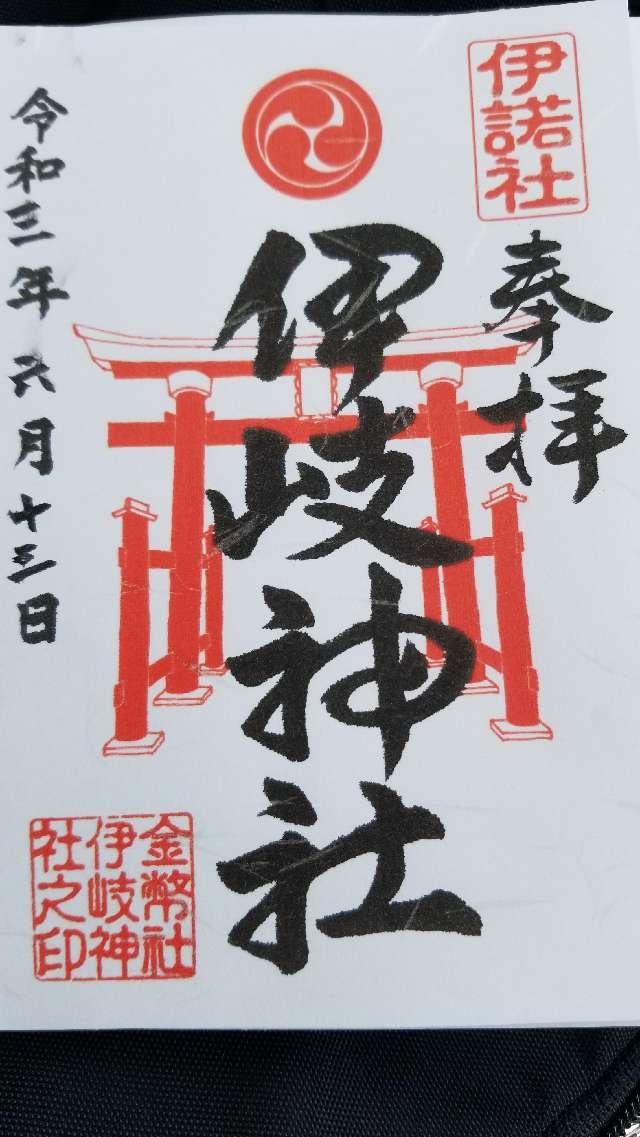 伊諾社
奉拝
伊岐神社
令和三年六月十三日
金幣社
伊岐神
社之印